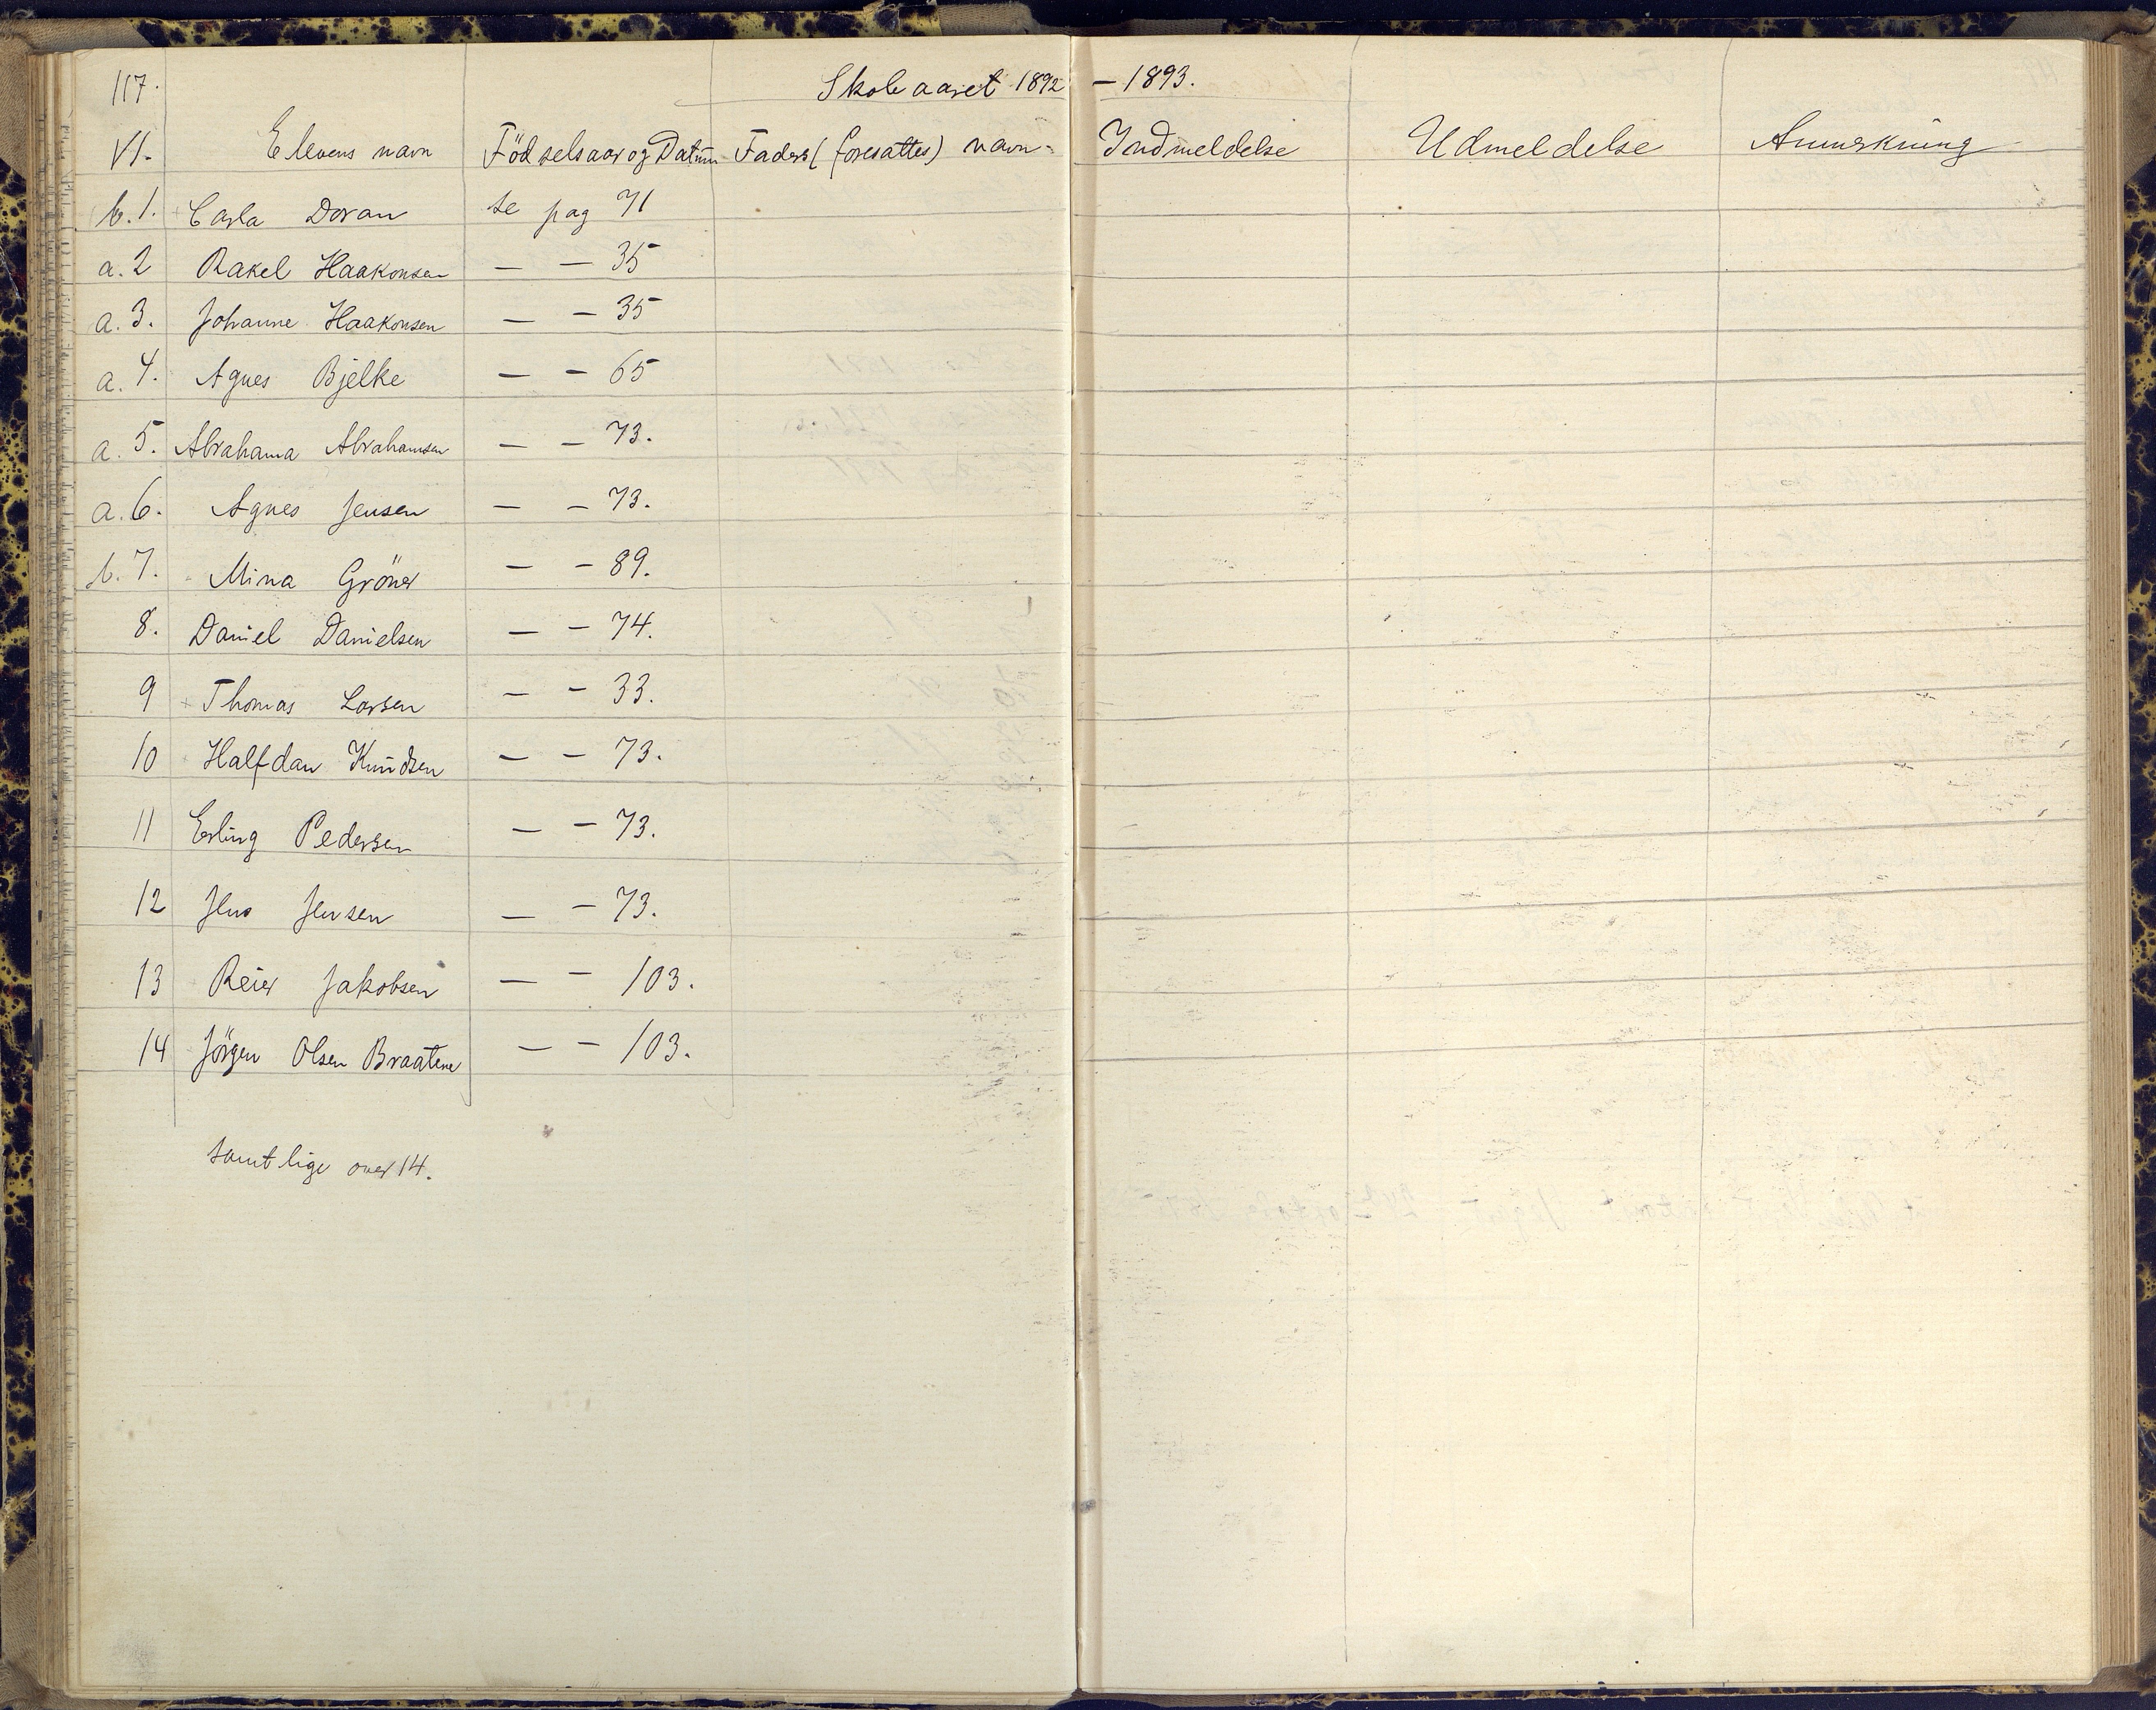 117.
Skoleaaret 1892 – 1893.
VI. Elevens navn Födselsaar og Datum Faders (foresattes) navn Indmeldelse Udmeldelse Anmerkning
b. 1. Carla Doran se pag 71
a. 2 Rakel Haakonsen — — 35
a. 3. Johanne Haakonsen — — 35
a. 4. Agnes Bjelke — — 65
a. 5. Abrahama Abrahamsen — — 73.
a. 6. Agnes Jensen — — 73.
b. 7. Mina Gröner — — 89.
8. Daniel Danielsen — — 74.
9 Thomas Larsen — — 33.
10 Halfdan Knudsen — — 73.
11 Erling Pedersen — — 73.
12 Jens Jensen — — 73.
13 Reier Jakobsen — — 103.
14 Jörgen Olsen Braatene — — 103.
samtlige over 14.